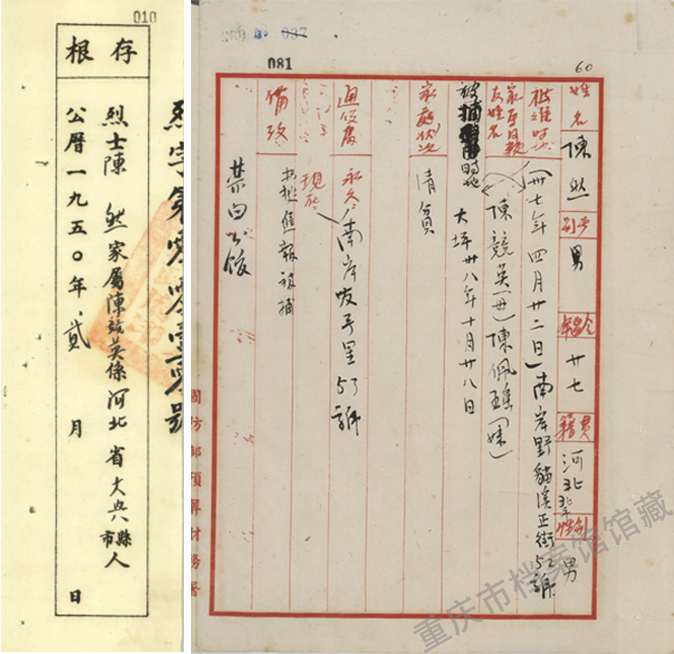 010
存根
烈士陳 然家屬陳競英係河北省大興縣市人
公曆一九五〇年 貳 月 日
烈字第零零壹號
037
081
60
姓名 陳然 別号 男 年齡 廿七 籍貫 河北 性別 男
(卅七年四月廿二日)南岸野貓溪正街52號
家長及親友姓名 陳競英(母)陳佩瑤(妹)
被捕 時地 大坪卅八年十月廿八日
家庭狀況 清貧
通信處 永久 現在 南岸
備考 挺進報被捕
國防部預算財務署
重庆市档案馆馆藏